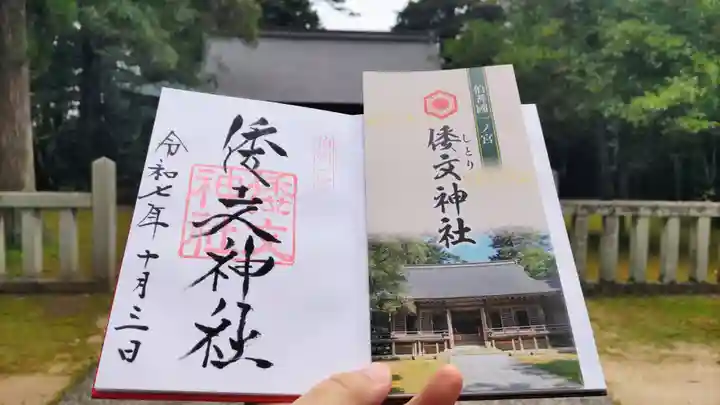 倭文神社
令和七年十月三日
倭文
神社
伯耆國一ノ宮
しとり
倭文神社